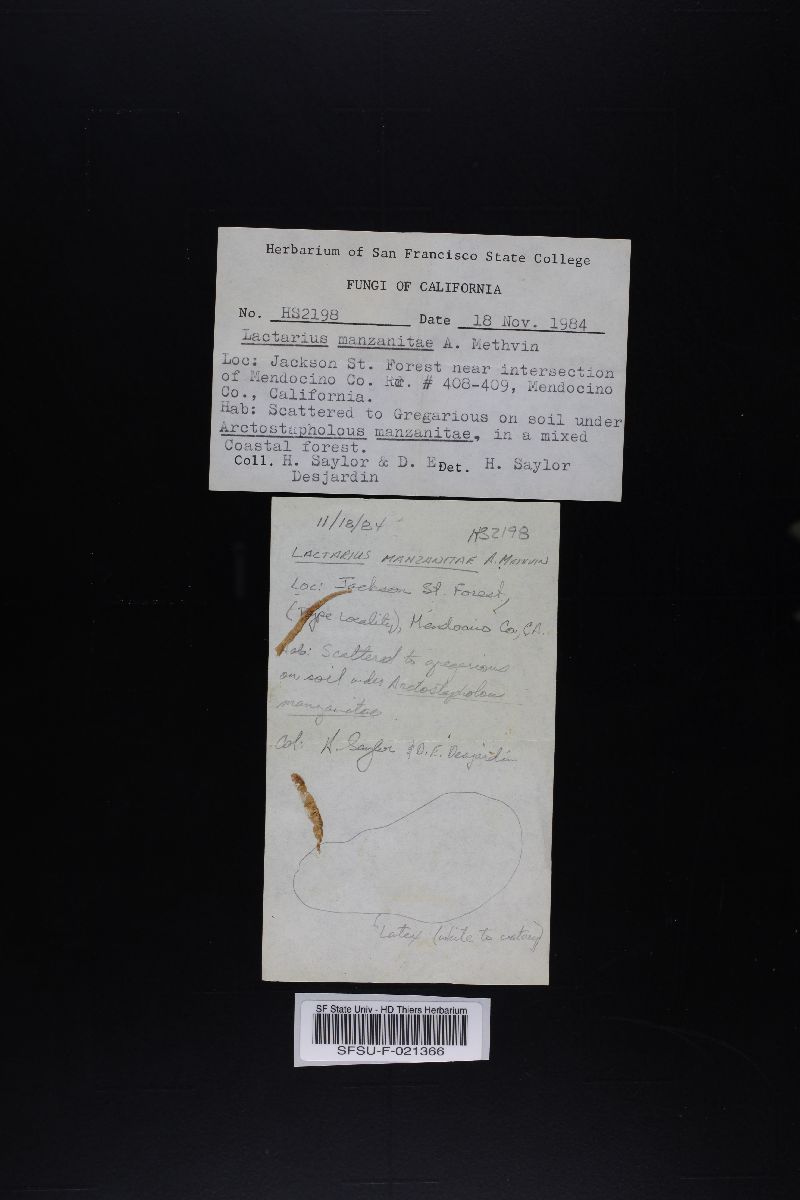 Herbarium of San Francisco State College
FUNGI OF CALIFORNIA
No. HS2198 Date 18 Nov. 1984
Lactarius manzanitae A. Methvin
Loc: Jackson St. Forest near intersection
of Mendocino Co. Rd. # 408-409, Mendocino
Co., California.
Hab: Scattered to Gregarious on soil under
Arctostapholous manzanitae, in a mixed
Coastal forest.
Coll. H. Saylor & D. E Det. H. Saylor
Desjardin
11/18/84 HS2198
LACTARIUS MANZANITAE A. Methvin
Loc: Jackson St. Forest,
(Type Locality), Mendocino Co., CA.
Hab: Scattered to gregarious
on soil under Arctostapholous
manzanitae.
Col: H. Saylor & D. E. Desjardin
Latex (white to watery)
SF State Univ - HD Thiers Herbarium
SFSU-F-021366